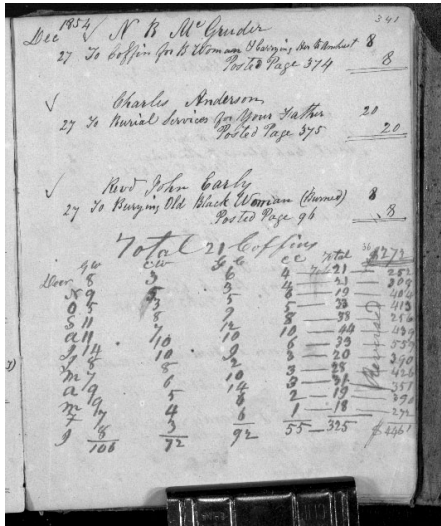 341
Dec 1854 √ N B McGruder
27 To Coffin for B Woman & carrying her to Amherst 8
Posted Page 374 8
√ Charles Anderson
27 To Burial Services for Your Father 20
Posted Page 375 20
√ Revd John Early
27 To Burying Old Black Woman (Burned) 8
Posted Page 96 8
Total 21 Coffins
GW CW GC CC Total $272
Decr 8 3 6 4 21 252
N 9 3 4 21
O 5 3 5 6 19 404
S 11 9 8 33 413
A 11 7 12 8 38 256
J 14 10 10 10 44 439
J 8 10 9 6 33 559
M 7 8 2 3 20 390
A 9 6 10 3 28 426
M 9 5 14 3 31 351
F 7 4 6 2 19 390
J 8 3 6 1 18 272
106 72 92 55 325 $4461